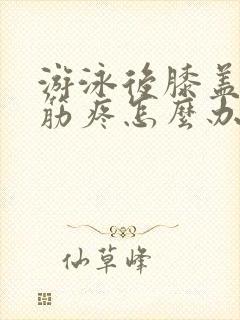 游泳後膝盖
筋疼怎麼办
仙草峰